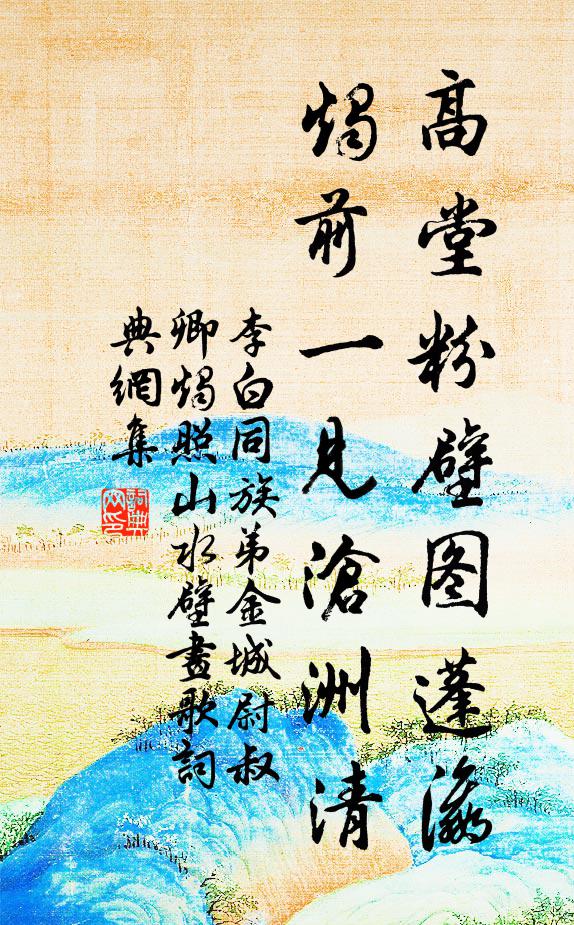 高堂粉壁图蓬瀛
烛前一見滄洲清
李白同族弟金城尉叔
卿烛照山水壁畫歌詞
典網集
詞典